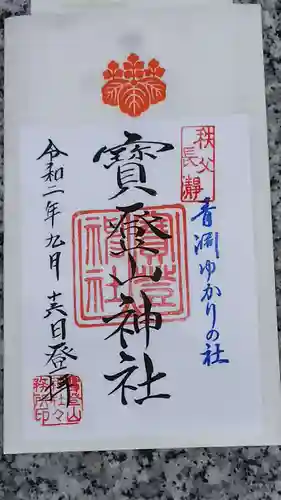 秩父
長瀞
青淵ゆかりの社
寶登山神社
寶登山
神社
令和二年九月十六日登拝
寶登山
神社々
務所印